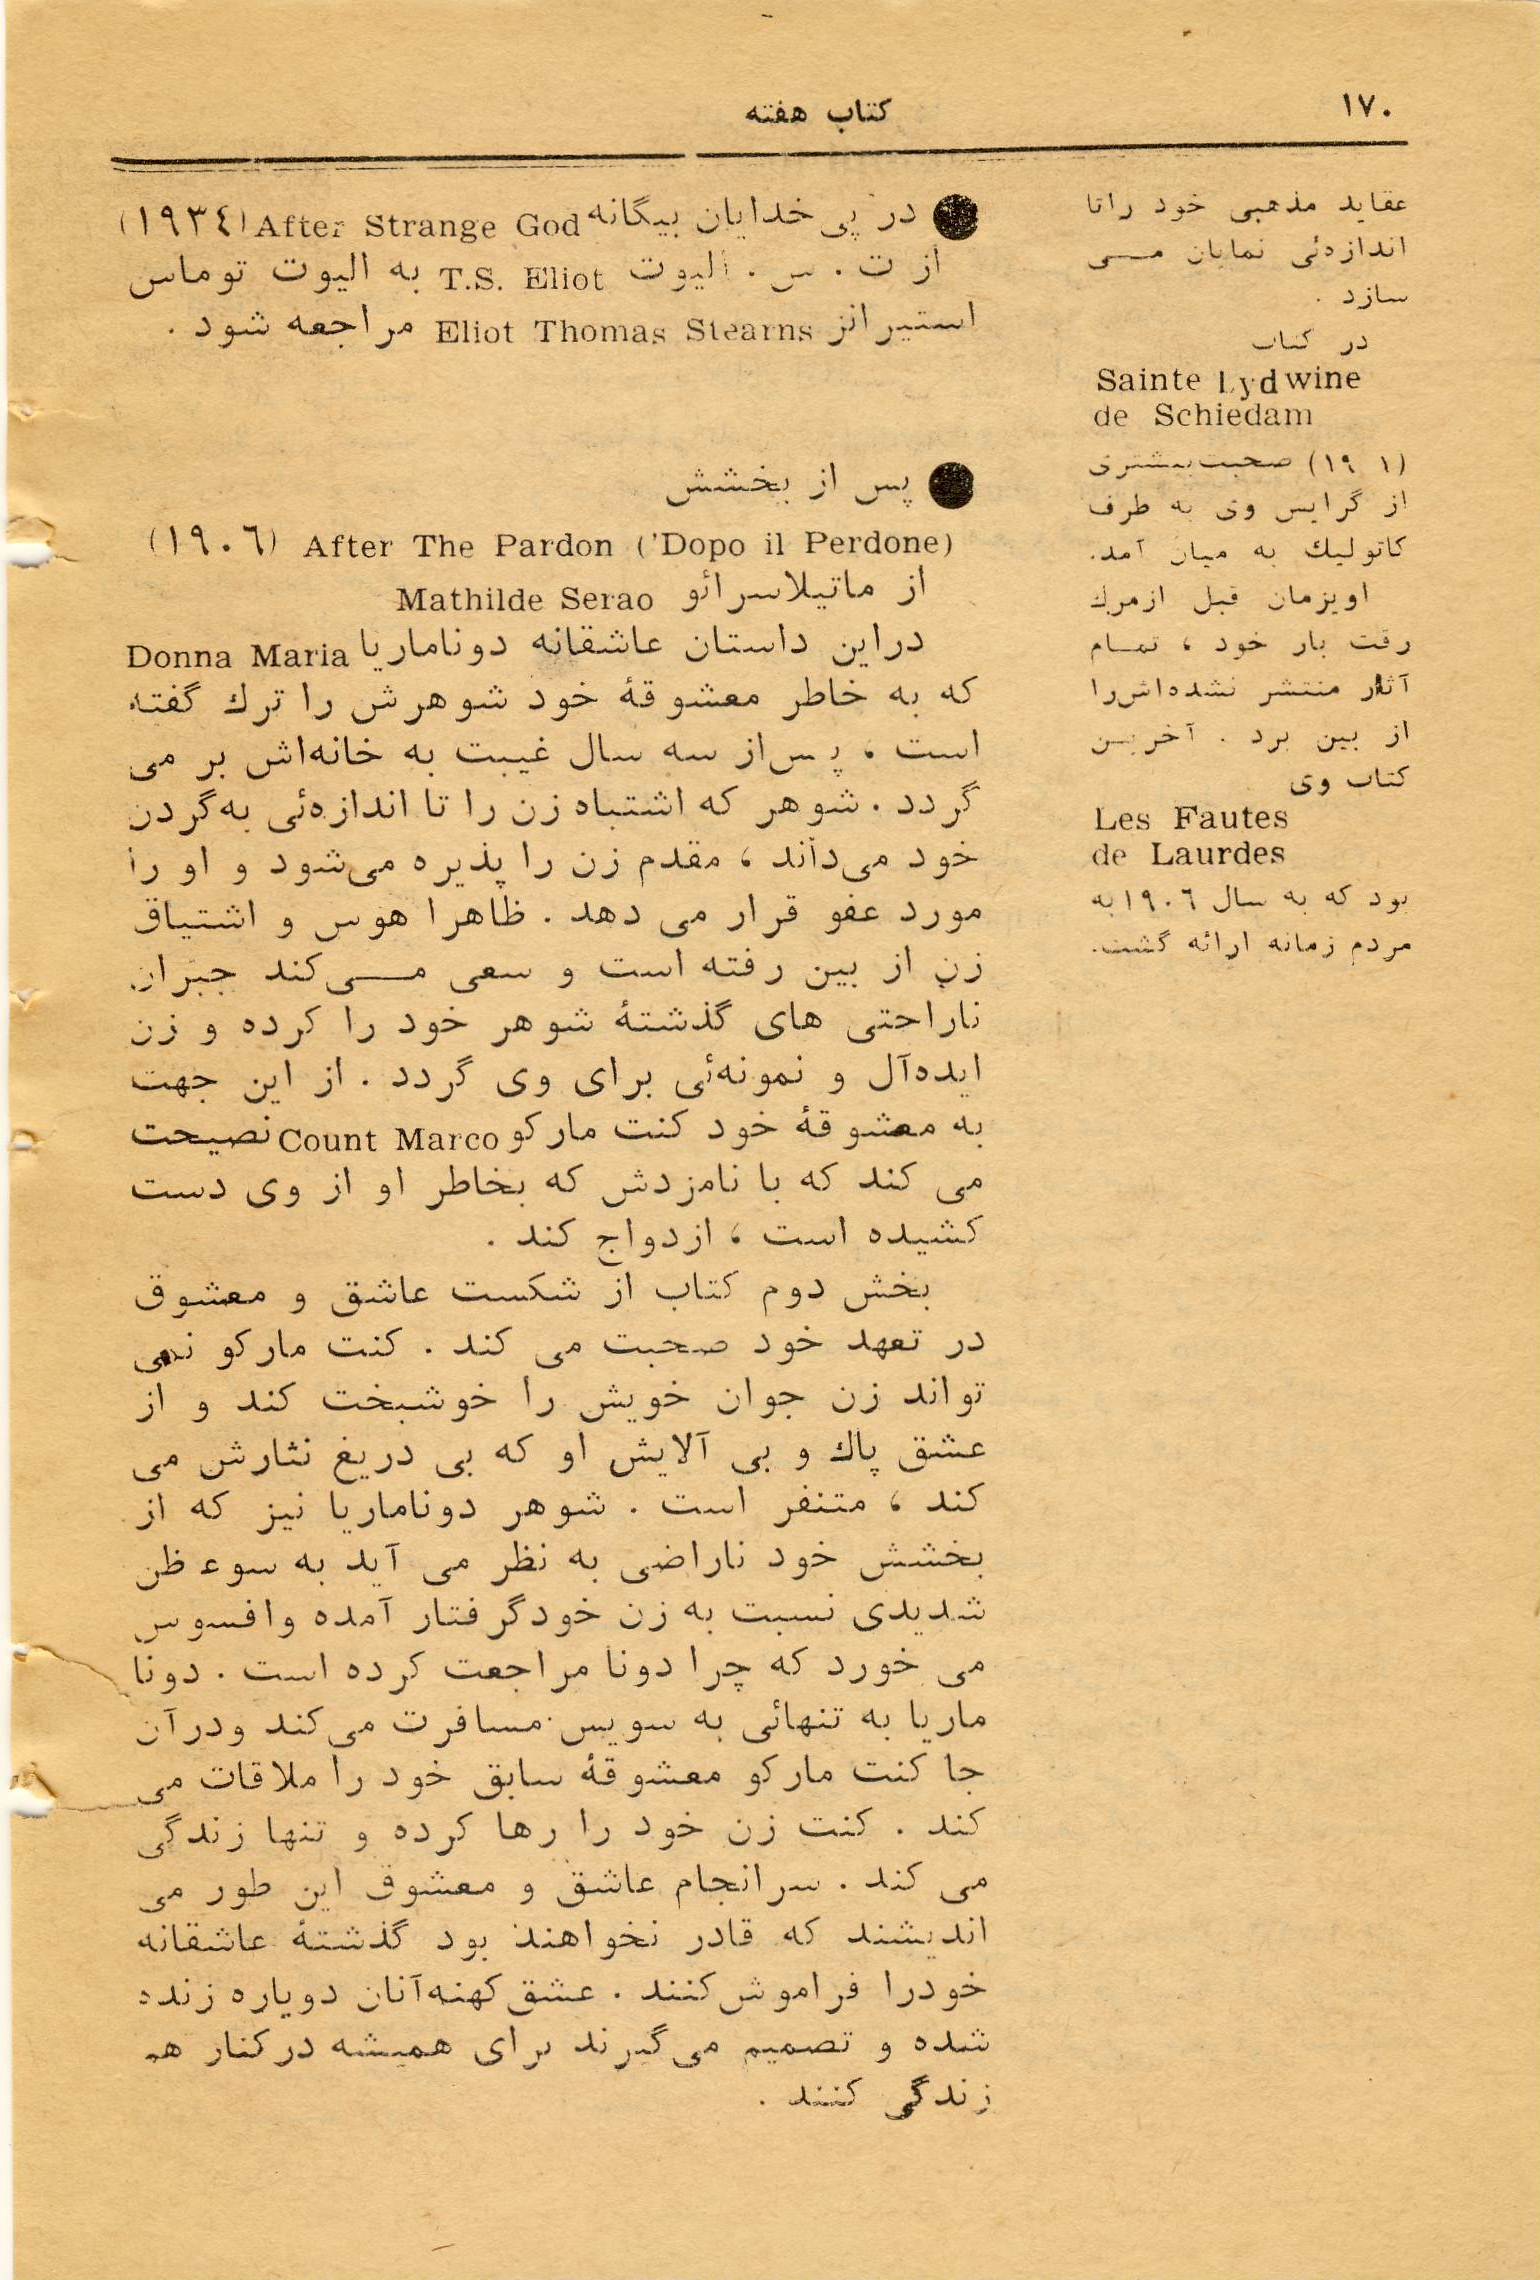 ١٧٠
کتاب هفته
عقاید مذهبی خود راتا
اندازه‌ئی نمایان مــی
سازد .
در کتاب
Sainte Lydwine
de Schiedam
(١٩ ١) صحبت‌بیشتری
از گرایس وی به طرف
کاتولیك به میان آمد.
اویزمان قبل ازمرك
رقت بار خود ، تمـام
آثار منتشر نشده‌اش‌را
از بین برد . آخریـن
کتاب وی
Les Fautes
de Laurdes
بود که به سال ١٩٠٦به
مردم زمانه ارائه گشت.
● در پی خدایان بیگانه After Strange God (١٩٣٤)
از ت . س . الیوت T.S. Eliot به الیوت توماس
استیرانز Eliot Thomas Stearns مراجعه شود .
● پس از بخشش
After The Pardon ('Dopo il Perdone) (١٩٠٦)
از ماتیلاسرائو Mathilde Serao
دراین داستان عاشقانه دوناماریا Donna Maria
که به خاطر معشوقهٔ خود شوهرش را ترك گفته
است ، پس‌از سه سال غیبت به خانه‌اش بر می
گردد . شوهر که اشتباه زن را تا اندازه‌ئی به‌گردن
خود می‌داند ، مقدم زن را پذیره می‌شود و او را
مورد عفو قرار می دهد . ظاهرا هوس و اشتیاق
زن از بین رفته است و سعی مــی‌کند جبران
ناراحتی های گذشتهٔ شوهر خود را کرده و زن
ایده‌آل و نمونه‌ئی برای وی گردد . از این جهت
به معشوقهٔ خود کنت مارکو Count Marco نصیحت
می کند که با نامزدش که بخاطر او از وی دست
کشیده است ، ازدواج کند .
بخش دوم کتاب از شکست عاشق و معشوق
در تعهد خود صحبت می کند . کنت مارکو نمی
تواند زن جوان خویش را خوشبخت کند و از
عشق پاك و بی آلایش او که بی دریغ نثارش می
کند ، متنفر است . شوهر دوناماریا نیز که از
بخشش خود ناراضی به نظر می آید به سوء ظن
شدیدی نسبت به زن خودگرفتار آمده وافسوس
می خورد که چرا دونا مراجعت کرده است . دونا
ماریا به تنهائی به سویس مسافرت می‌کند ودرآن
جا کنت مارکو معشوقهٔ سابق خود را ملاقات می
کند . کنت زن خود را رها کرده و تنها زندگی
می کند . سرانجام عاشق و معشوق این طور می
اندیشند که قادر نخواهند بود گذشتهٔ عاشقانه
خودرا فراموش‌کنند . عشق‌کهنه‌آنان دوباره زنده
شده و تصمیم می‌گیرند برای همیشه درکنار هم
زندگی کنند .